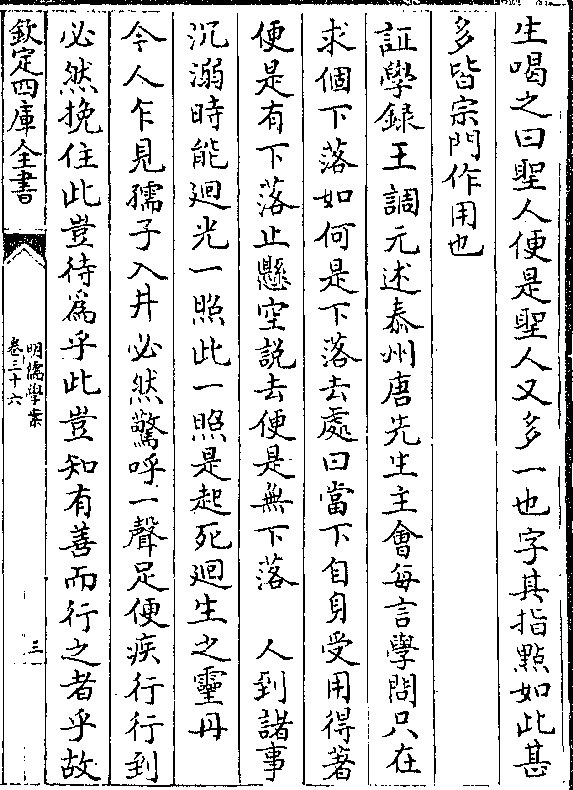 生喝之曰聖人便是聖人又多一也字其指點如此甚
多皆宗門作用也
証學録王調元述泰州唐先生主會每言學問只在
求個下落如何是下落去處曰當下自身受用得著
便是有下落止懸空説去便是無下落　人到諸事
沉溺時能廻光一照此一照是起死廻生之靈丹
今人乍見孺子入井必然驚呼一聲足便疾行行到
必然挽住此豈待為乎此豈知有善而行之者乎故
欽定四庫全書
明儒學案
卷三十六
三